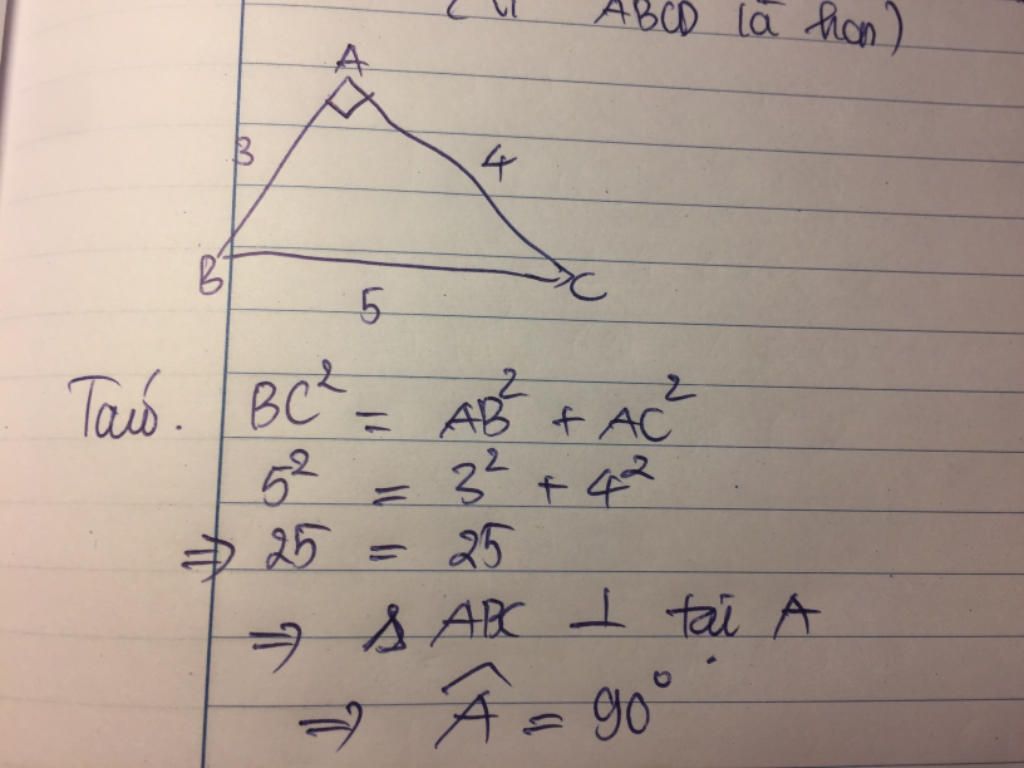 ABCD là hcn)
A
3
4
B
C
5
Ta có. BC² = AB² + AC²
5² = 3² + 4²
⇒ 25 = 25
⇒ Δ ABC ⊥ tại A
⇒ Â = 90°